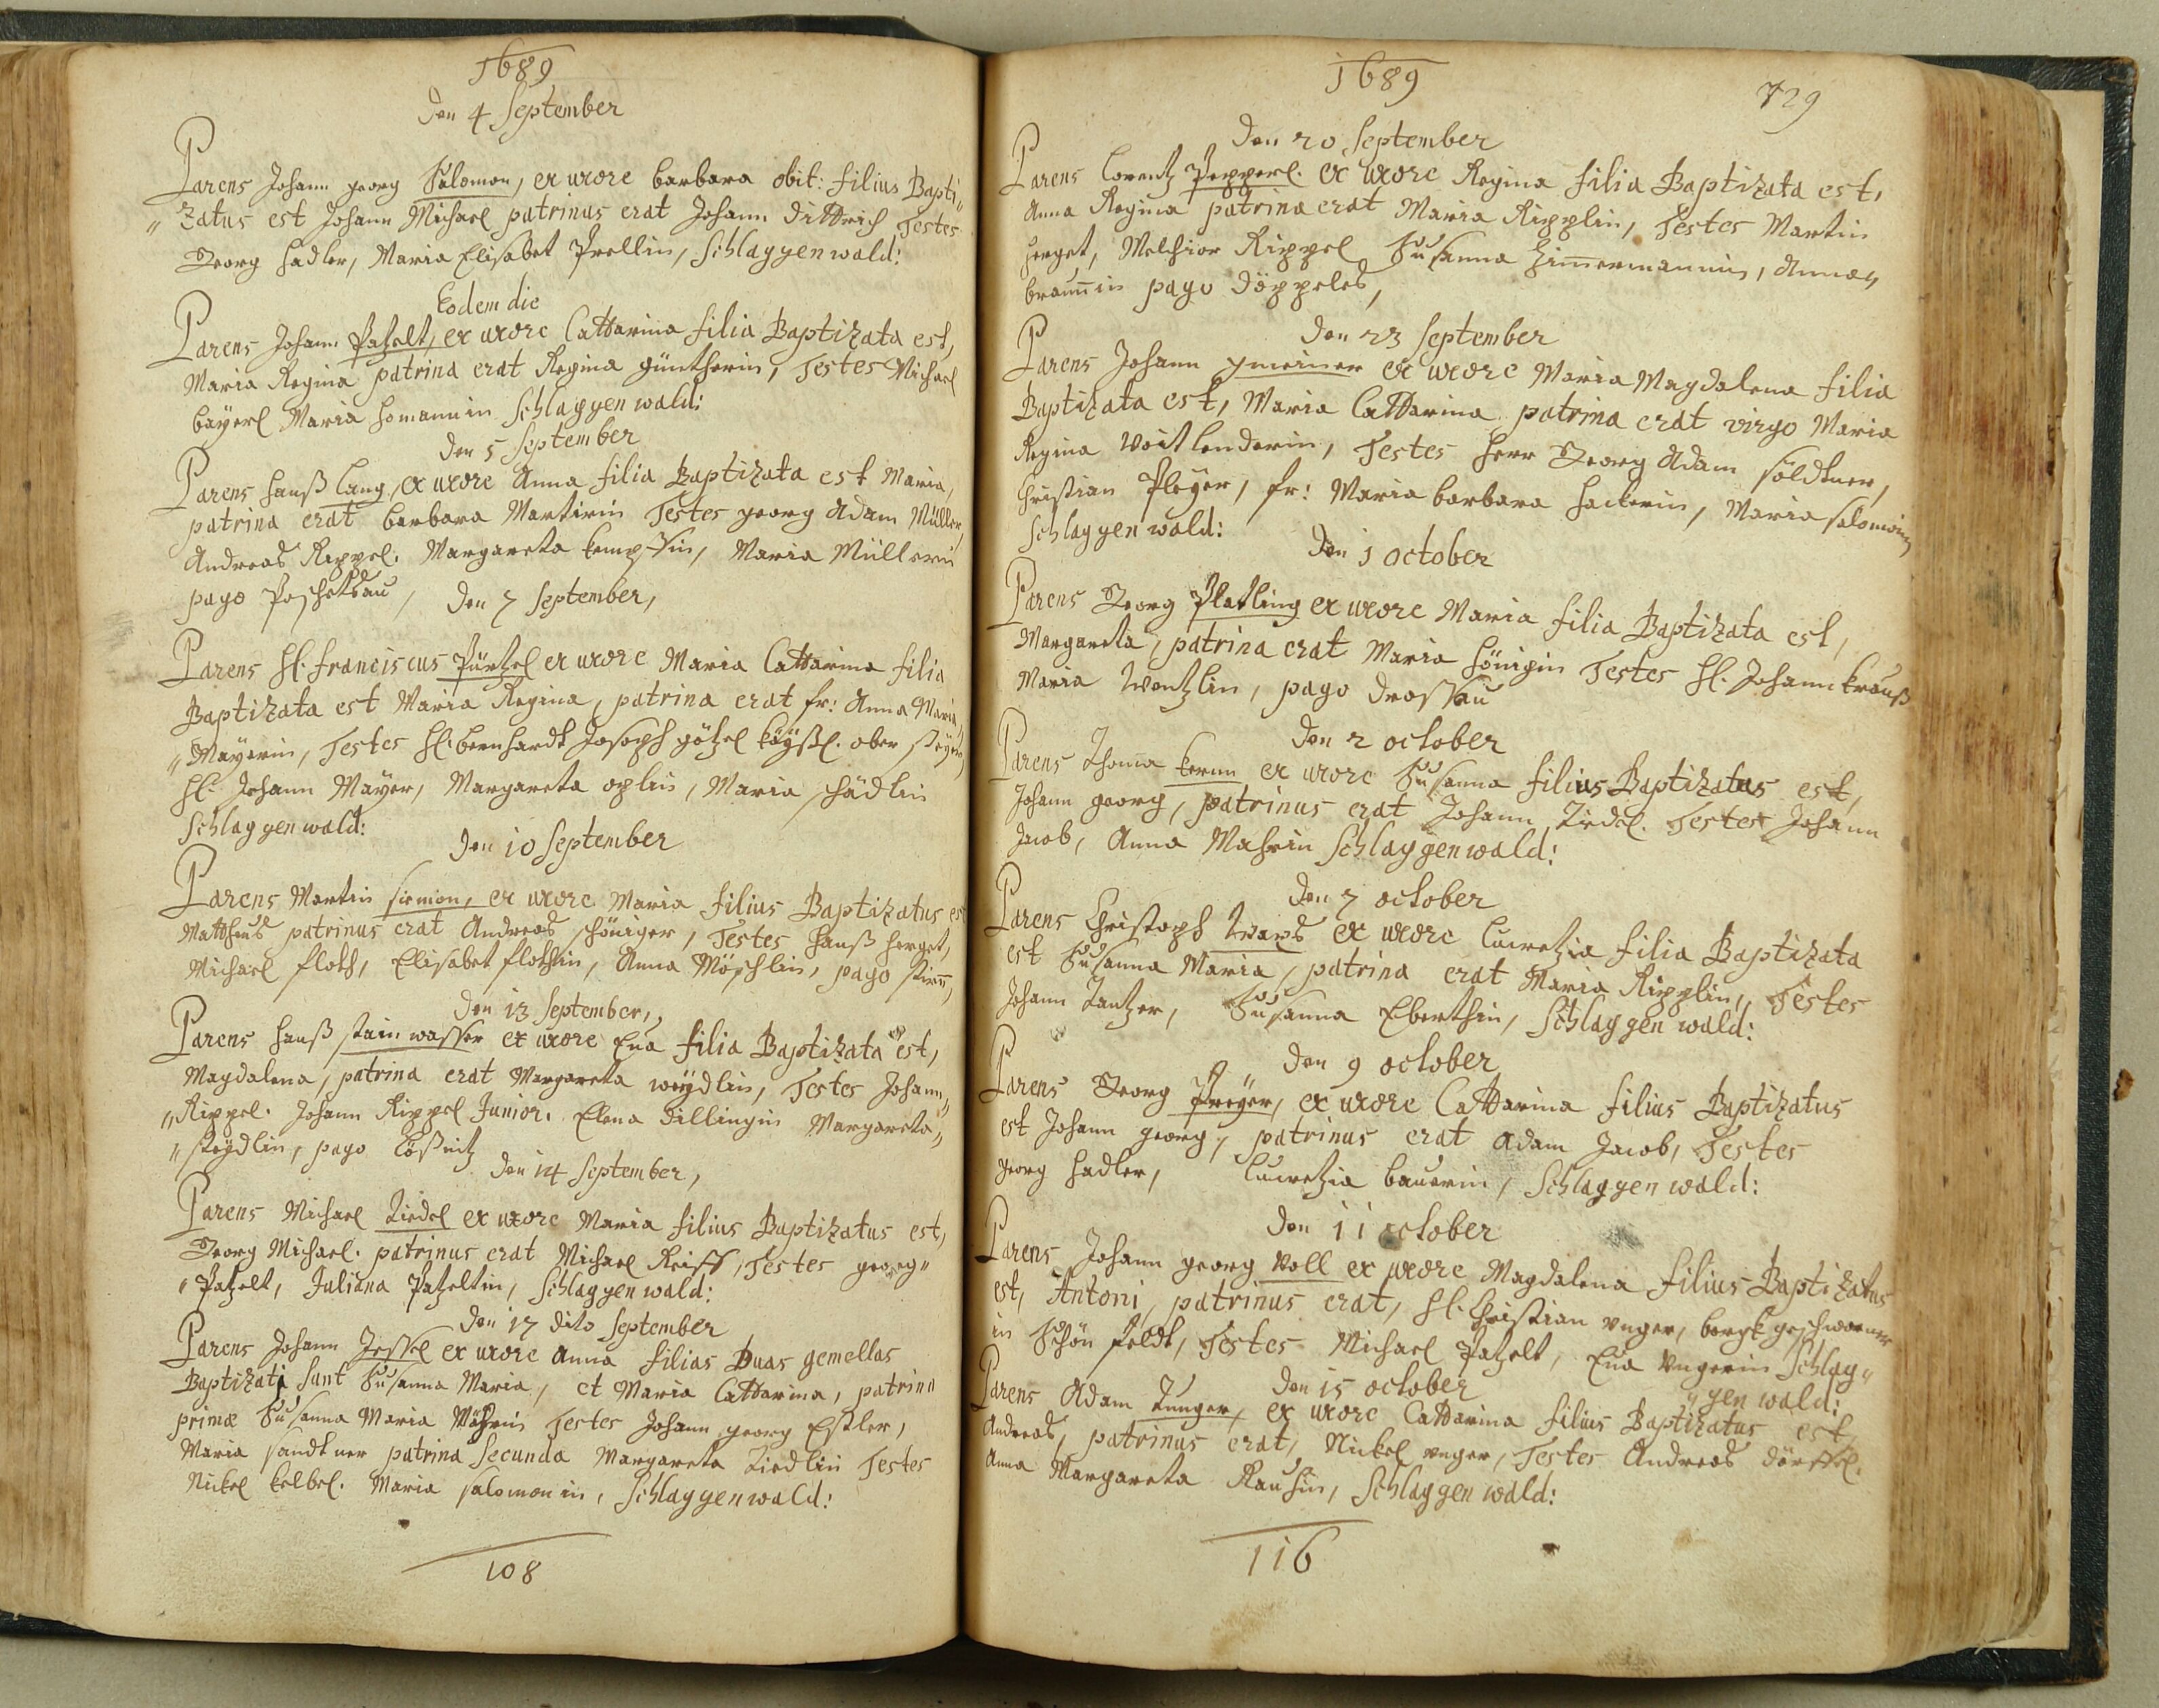 1689
Den 4 September
Parens Johann georg Salomon, ex uxore barbara obit: filius Bapti„
„zatus est Johann Michael patrinus erat Johann Dittrich Testes
Georg hadler, Maria Elisabet Prellin, Schlaggenwald:
Eodem die
Parens Johann Patzelt, ex uxore Cattarina filia Baptizata est,
Maria Regina patrina erat Regina güntherin, Testes Michael
bayerl Maria homannin Schlaggenwald:
den 5 September
Parens hanß Lang, ex uxore Anna filia Baptizata est Maria,
patrina erat barbara Martirin Testes georg Adam Müller,
Andreas Rippel. Margareta Maria Müllerin
pago Poschetzau, Den 7 September,
Parens H: Franciscus Pürtzel ex uxore Maria Cattarina filia
Baptizata est Maria Regina, patrina erat fr: Anna Maria
„Mayerin, Testes H: bernhardt Joseph götzel ober
H: Johann Mayer, Margareta oplin, Maria schädlin
Schlaggenwald:
Den 10 September
Parens Martin simion, ex uxore Maria filius Baptizatus est
Mattheus patrinus erat Andreas schöniger, Testes hanß herget,
Michael floth, Elisabet flothin, Anna Möschlin, pago stirn,
den 13 September,
Parens hanß stainwasser ex uxore Eua filia Baptizata est,
Magdalena, patrina erat Margareta weydlin, Testes Johann„
„Rippel. Johann Rippel Junior. Elena Dillingin Margareta„
„steydlin, pago Loßnitz
den 14 September,
Parens Michael Zirdel ex uxore Maria filius Baptizatus est,
Georg Michael. patrinus erat Michael Testes georg„
„Patzelt, Juliana Patzeltin, Schlaggenwald:
Den 17 dito September
Parens Johann Jessel ex uxore Anna filias Duas gemellas
Baptizati sunt Susanna Maria, et Maria Cattarina, patrina
primæ Susanna Maria Testes Johann georg Estler,
Maria sandtner patrina Secunda Margareta Zirdlin Testes
Nickel kelbel. Maria salomonin, Schlaggenwald:
108
1689
729
Den 20 September
Parens Lorentz Pepperl. ex uxore Regina filia Baptizata est,
Anna Regina patrina erat Maria Ripplin, Testes Martin
herget, Melchior Rippel Susanna Zimermannin, Anna„
braunin pago Döppeles,
Den 23 September
Parens Johann gmeiner ex uxore Maria Magdalena filia
Baptizata est, Maria Cattarina patrina erat virgo Maria
Regina Voitlenderin, Testes Herr Georg Adam söldtner,
Christian Pleyer, fr: Maria barbara hackerin, Maria salomonin
Schlaggenwald:
Den 1 october
Parens Georg Platling ex uxore Maria filia Baptizata est,
Margareta, patrina erat Maria hönigin Testes H: Johann krauß
Maria Wentzlin, pago Drossau
Den 2 october
Parens Thoma kernn ex uxore Susanna filius Baptizatus est,
Johann georg, patrinus erat Johann Zirdel. Testes Johann
Jacob, Anna Mahrin Schlaggenwald:
Den 7 october
Parens Christoph ex uxore Lucretzia filia Baptizata
est Susanna Maria, patrina erat Maria Ripplin, Testes
Johann Tantzer, Susanna Eberthin, Schlaggenwald:
Den 9 october
Parens Georg Preyer, ex uxore Cattarina filius Baptizatus
est Johann georg, patrinus erat Adam Jacob, Testes
georg hadler, Lucretzia bauerin, Schlaggenwald:
Den 11 october
Parens Johann georg Voll ex uxore Magdalena filius Baptizatus
est, Antoni, patrinus erat, H: Christian vnger, bergkgeschworner
in Schönfeldt, Testes Michael Patzelt, Eua Vngerin Schlag„
„genwald:
Den 15 october
Parens Adam Zunger, ex uxore Cattarina filius Baptizatus est,
Andreas, patrinus erat, Nickel vnger, Testes Andreas dörffel.
Anna Margareta Schlaggenwald:
116